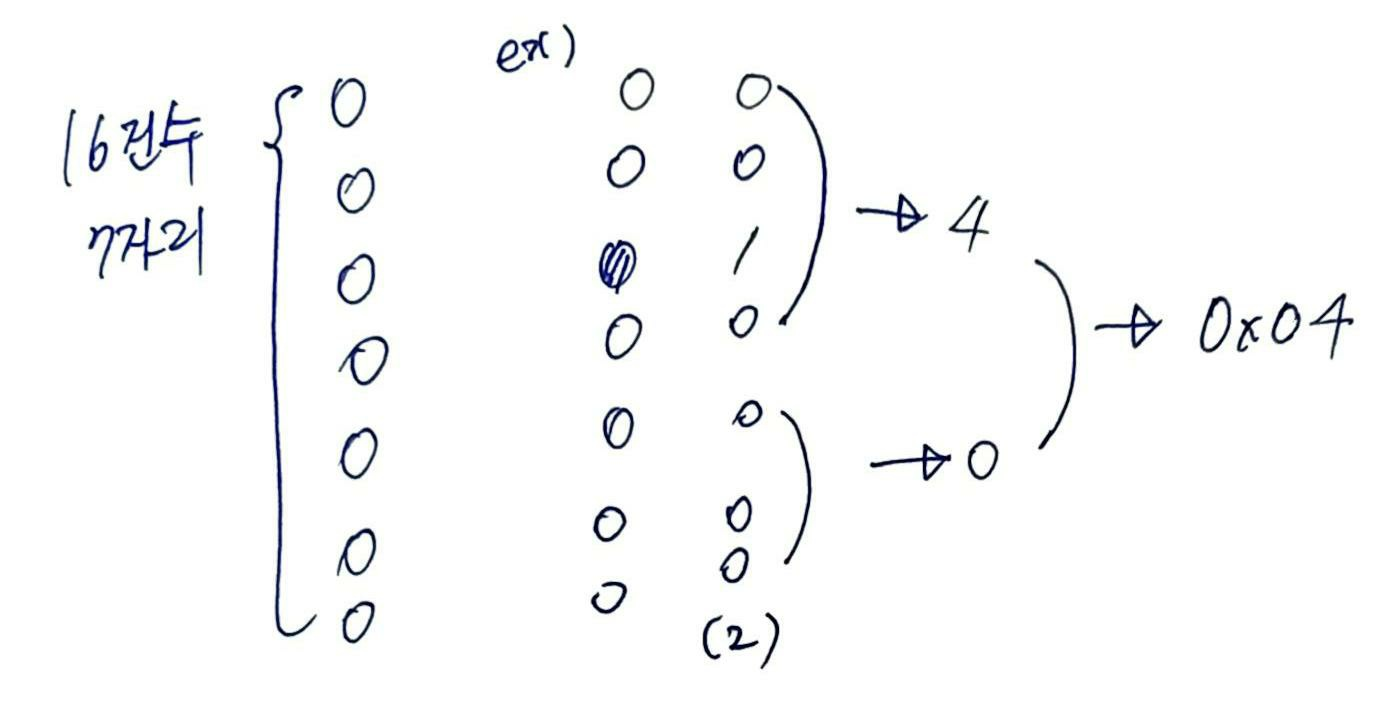 ex)
16진수
7자리
{ 0 0 0 0 0 0 0
0 0
0 0
1
0 0
0 0
0 0
0 0
(2)
→ 4
→ 0
→ 0x04